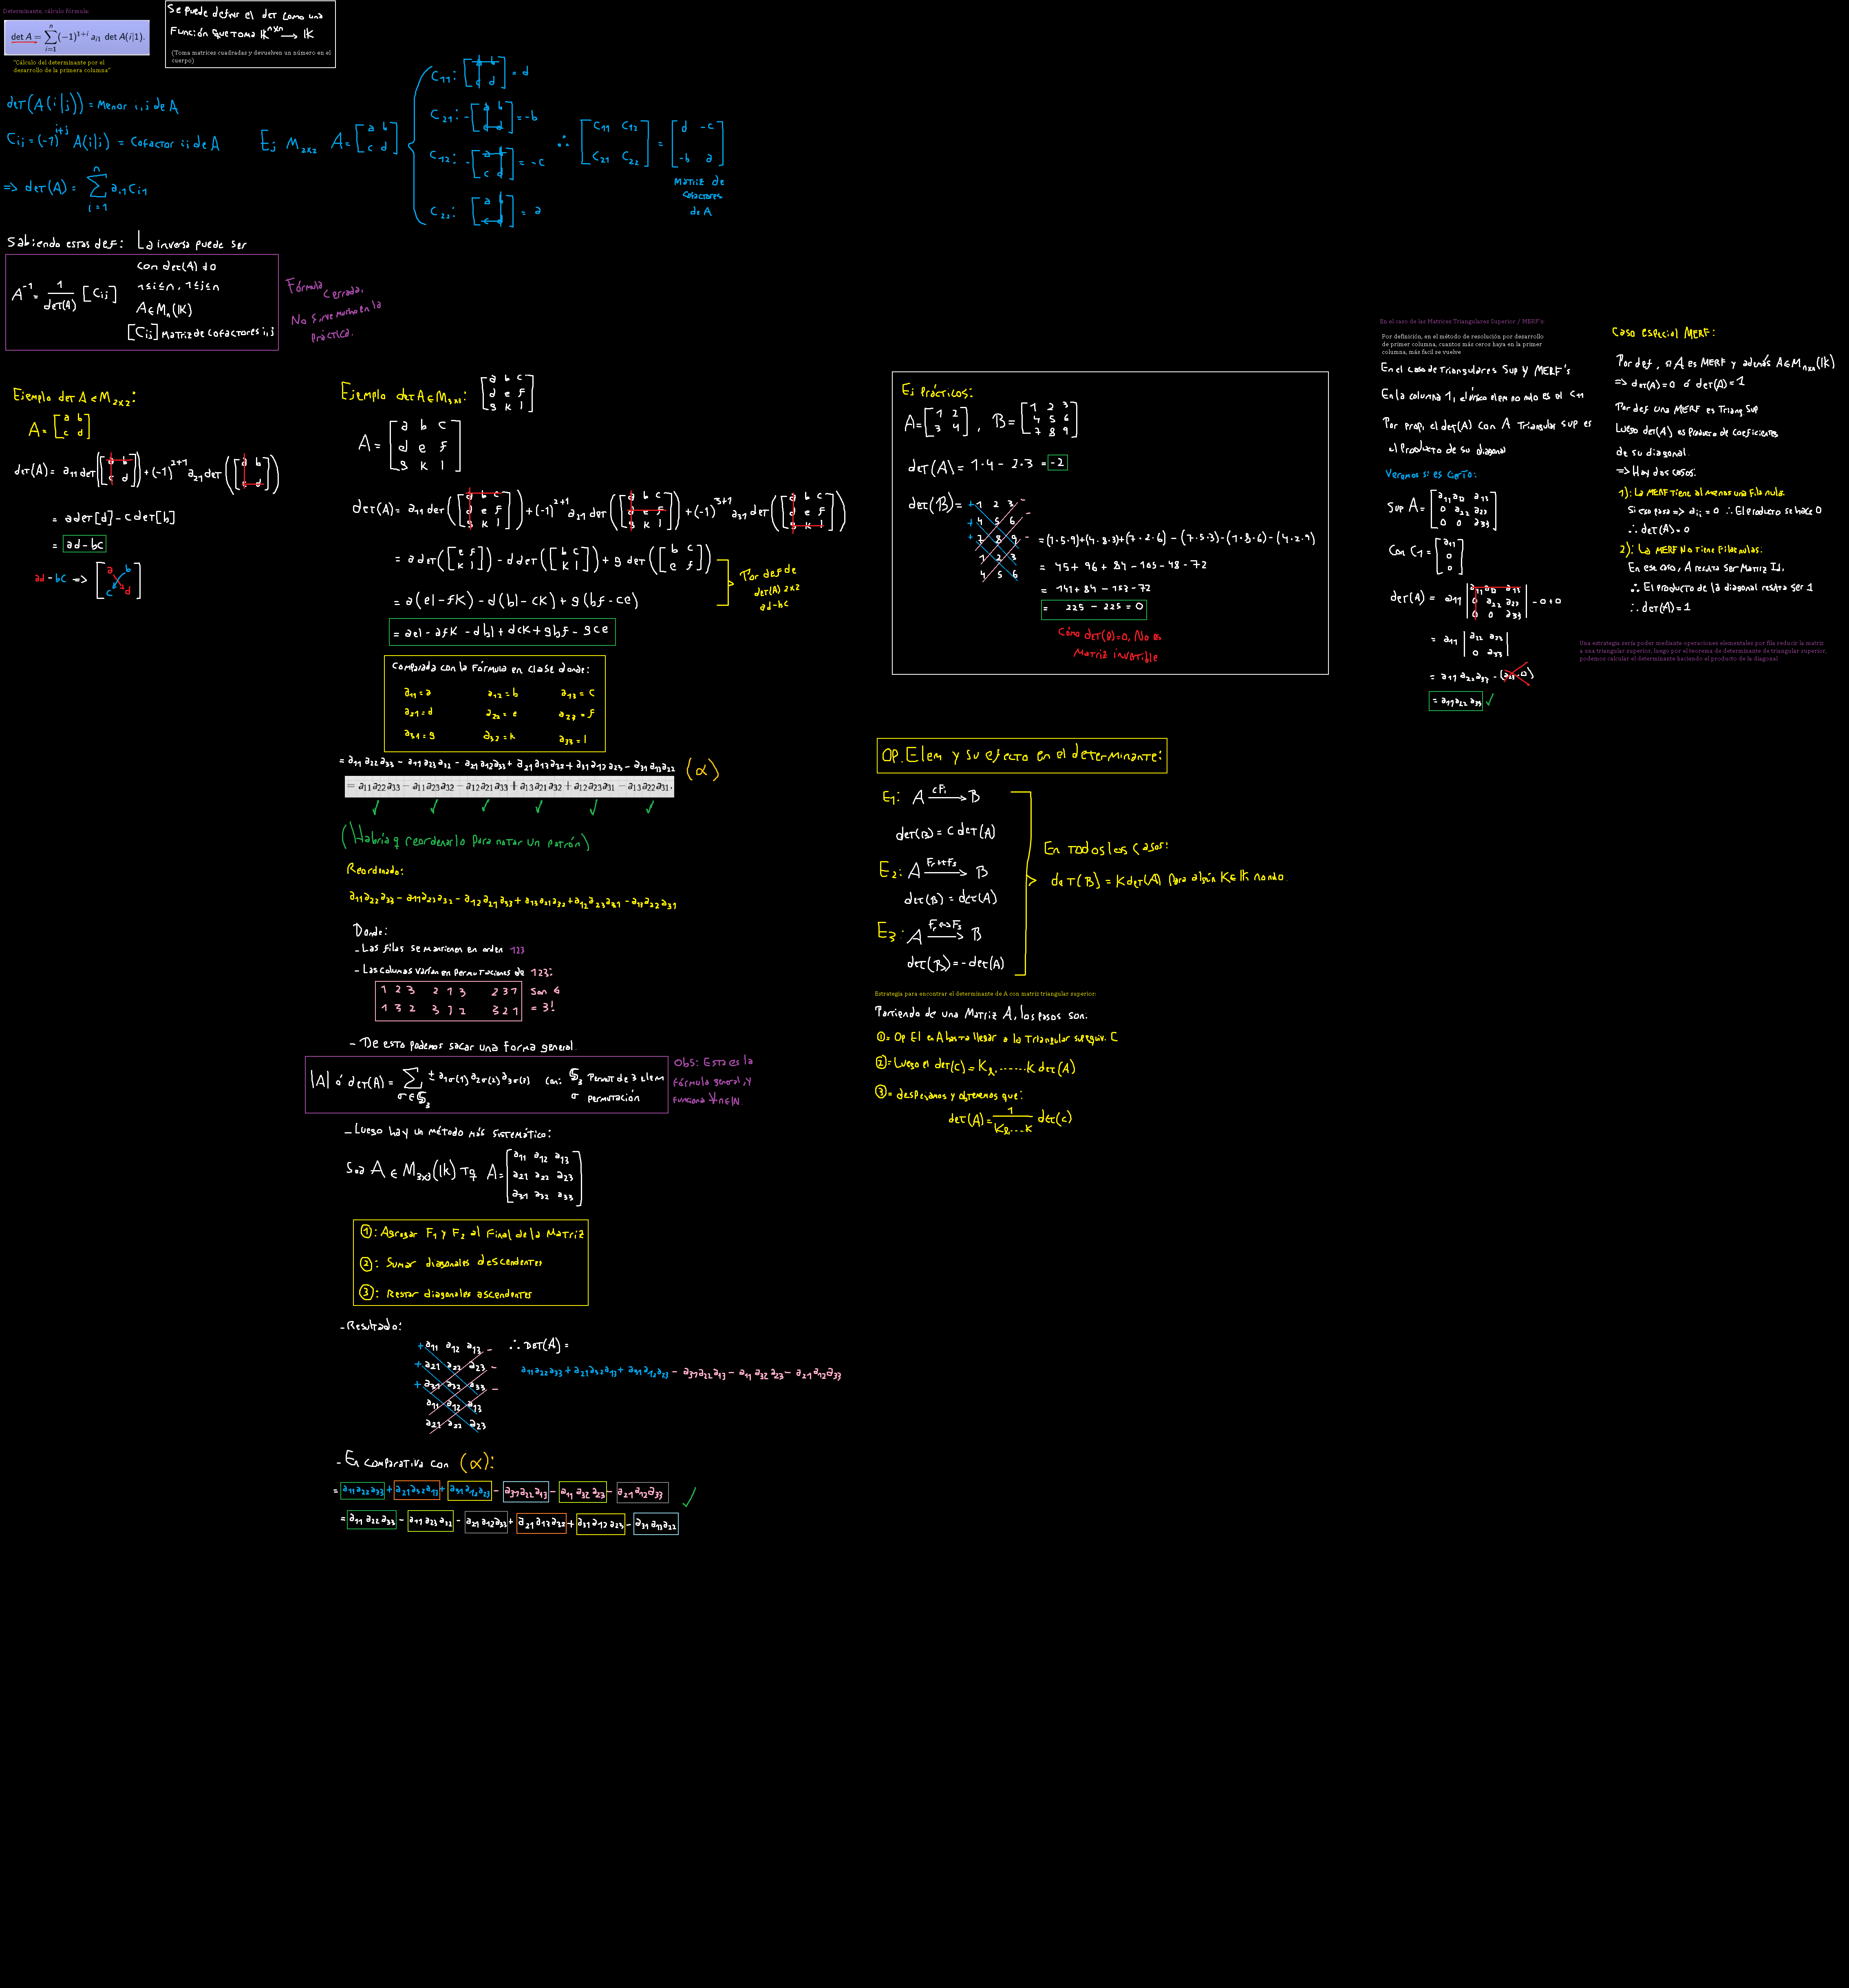 Determinante, cálculo fórmula:
det A = ∑_{i=1}^{n} (-1)^{1+i} a_{i1} det A(i|1).
"Cálculo del determinante por el
desarrollo de la primera columna"
Se puede definir el det como una
Función que toma 𝕂^{n×n} → 𝕂
(Toma matrices cuadradas y devuelven un número en el
cuerpo)
det(A(i|j)) = Menor i,j de A
C_{ij} = (-1)^{i+j} A(i|i) = Cofactor ij de A
=> det(A) = ∑_{i=1}^{n} a_{i1} C_{i1}
Ej M_{2x2} A = [a b; c d]
C_{11}: [a b; c d] = d
C_{21}: -[a b; c d] = -b
C_{12}: -[a b; c d] = -c
C_{22}: [a b; c d] = a
∴ [C_{11} C_{12}; C_{21} C_{22}] = [d -c; -b a]
Matriz de
cofactores
de A
Sabiendo estas def: La inversa puede ser
A^{-1} = 1/det(A) [C_{ij}]
con det(A) ≠ 0
1≤i≤n, 1≤j≤n
A∈M_n(𝕂)
[C_{ij}] matriz de cofactores i,j
Fórmula
cerrada.
No sirve mucho en la
práctica.
Ejemplo det A ∈ M_{2x2}:
A = [a b; c d]
det(A) = a_{11} det([a b; c d]) + (-1)^{2+1} a_{21} det([a b; c d])
= a det[d] - c det[b]
= ad - bc
ad - bc => [a b; c d]
Ejemplo det A ∈ M_{3x3}: [a b c; d e f; g k l]
A = [a b c; d e f; g k l]
det(A) = a_{11} det([a b c; d e f; g k l]) + (-1)^{2+1} a_{21} det([a b c; d e f; g k l]) + (-1)^{3+1} a_{31} det([a b c; d e f; g k l])
= a det([e f; k l]) - d det([b c; k l]) + g det([b c; e f])
= a(el - fk) - d(bl - ck) + g(bf - ce)
Por def de
det(A) 2x2
ad-bc
= ael - afk - dbl + dck + gbf - gce
Comparada con la Fórmula en clase donde:
a_{11} = a a_{12} = b a_{13} = c
a_{21} = d a_{22} = e a_{23} = f
a_{31} = g a_{32} = k a_{33} = l
= a_{11}a_{22}a_{33} - a_{11}a_{23}a_{32} - a_{21}a_{12}a_{33} + a_{21}a_{13}a_{32} + a_{31}a_{12}a_{23} - a_{31}a_{13}a_{22} (α)
= a_{11}a_{22}a_{33} - a_{11}a_{23}a_{32} - a_{12}a_{21}a_{33} + a_{13}a_{21}a_{32} + a_{12}a_{23}a_{31} - a_{13}a_{22}a_{31}.
(Habría q reordenarlo para notar un patrón)
Reordenado:
a_{11}a_{22}a_{33} - a_{11}a_{23}a_{32} - a_{12}a_{21}a_{33} + a_{13}a_{21}a_{32} + a_{12}a_{23}a_{31} - a_{13}a_{22}a_{31}
Donde:
- Las filas se mantienen en orden 123
- Las columas varían en permutaciones de 123:
1 2 3 2 1 3 2 3 1 Son 6
1 3 2 3 1 2 3 2 1 = 3!
- De esto podemos sacar una forma general.
|A| ó det(A) = ∑_{σ∈𝕊_3} ± a_{1σ(1)} a_{2σ(2)} a_{3σ(3)} con: 𝕊_3 Permut de 3 elem
σ permutación
Obs: Esta es la
fórmula general, y
funciona ∀n∈ℕ.
- Luego hay un método más sistemático:
Sea A ∈ M_{3x3}(𝕂) Tq A = [a_{11} a_{12} a_{13}; a_{21} a_{22} a_{23}; a_{31} a_{32} a_{33}]
①: Agregar F_1 y F_2 al Final de la Matriz
②: Sumar diagonales descendentes
③: Restar diagonales ascendentes
- Resultado:
+ a_{11} a_{12} a_{13} -
+ a_{21} a_{22} a_{23} -
+ a_{31} a_{32} a_{33} -
a_{11} a_{12} a_{13}
a_{21} a_{22} a_{23}
∴ DET(A) =
a_{11}a_{22}a_{33} + a_{21}a_{32}a_{13} + a_{31}a_{12}a_{23} - a_{31}a_{22}a_{13} - a_{11}a_{32}a_{23} - a_{21}a_{12}a_{33}
- En comparativa con (α):
= a_{11}a_{22}a_{33} + a_{21}a_{32}a_{13} + a_{31}a_{12}a_{23} - a_{31}a_{22}a_{13} - a_{11}a_{32}a_{23} - a_{21}a_{12}a_{33}
= a_{11}a_{22}a_{33} - a_{11}a_{23}a_{32} - a_{21}a_{12}a_{33} + a_{21}a_{13}a_{32} + a_{31}a_{12}a_{23} - a_{31}a_{13}a_{22}
Ej Prácticos:
A = [1 2; 3 4], B = [1 2 3; 4 5 6; 7 8 9]
det(A) = 1·4 - 2·3 = -2
det(B) =
+ 1 2 3 -
+ 4 5 6 -
+ 7 8 9 -
1 2 3
4 5 6
= (1·5·9)+(4·8·3)+(7·2·6) - (7·5·3)-(1·8·6)-(4·2·9)
= 45 + 96 + 84 - 105 - 48 - 72
= 141 + 84 - 153 - 72
= 225 - 225 = 0
Cómo det(B)=0, No es
Matriz invertible
Op. Elem y su efecto en el determinante:
E_1: A →^{cF_i} B
det(B) = c det(A)
E_2: A →^{F_r+tF_s} B
det(B) = det(A)
E_3: A →^{F_r↔F_s} B
det(B) = -det(A)
En todos los casos:
det(B) = K det(A) Para algún K∈𝕂 no nulo
Estrategia para encontrar el determinante de A con matriz triangular superior:
Partiendo de una Matriz A, los pasos son:
①= Op El en A hasta llegar a la Triangular sup equiv. C
②= Luego el det(C) = K_ℓ.......K det(A)
③= despejamos y obtenemos que:
det(A) = 1/(K_ℓ....K) det(c)
En el caso de las Matrices Triangulares Superior / MERF's:
Por definición, en el método de resolución por desarrollo
de primer columna, cuantos más ceros haya en la primer
columna, más facil se vuelve
En el caso de Triangulares Sup y MERF's
En la columna 1, el único elem no nulo es el C_{11}
Por prop, el det(A) con A Triangular sup es
el Producto de su diagonal
Veamos si es cierto:
Sup A = [a_{11} a_{12} a_{13}; 0 a_{22} a_{23}; 0 0 a_{33}]
Con C_1 = [a_{11}; 0; 0]
det(A) = a_{11} |a_{11} a_{12} a_{13}; 0 a_{22} a_{23}; 0 0 a_{33}| - 0 + 0
= a_{11} |a_{22} a_{23}; 0 a_{33}|
= a_{11} a_{22} a_{33} - (a_{23}·0)
= a_{11} a_{22} a_{33} ✓
Caso especial MERF:
Por def, si A es MERF y además A∈M_{nxn}(𝕂)
=> det(A)=0 ó det(A)=1
Por def una MERF es Triang Sup
Luego det(A) es Producto de coeficientes
de su diagonal.
=> Hay dos casos:
1): La MERF tiene al menos una fila nula.
Si eso pasa => a_{ii} = 0 ∴ El producto se hace 0
∴ det(A) = 0
2): La MERF No tiene filas nulas.
En ese caso, A resulta ser Matriz Id.
∴ El Producto de la diagonal resulta ser 1
∴ det(A) = 1
Una estrategia sería poder mediante operaciones elementales por fila reducir la matriz
a una triangular superior, luego por el teorema de determinante de triangular superior,
podemos calcular el determinante haciendo el producto de la diagonal